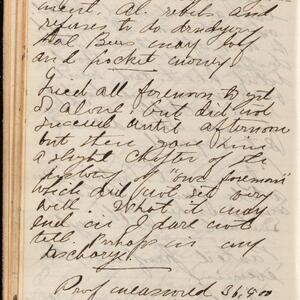 ment. Al. rebels and
refuses to do drudgery
that Bees may
and pocket money
Tried all forenoon to get
J alone but did not
succeed until afternoon
but then gave him
a slight chapter of the
history of "our foreman"
which did not set very
well. What it may
end in I dare not
tell. Perhaps in my
discharge.
Prof measured 36,800